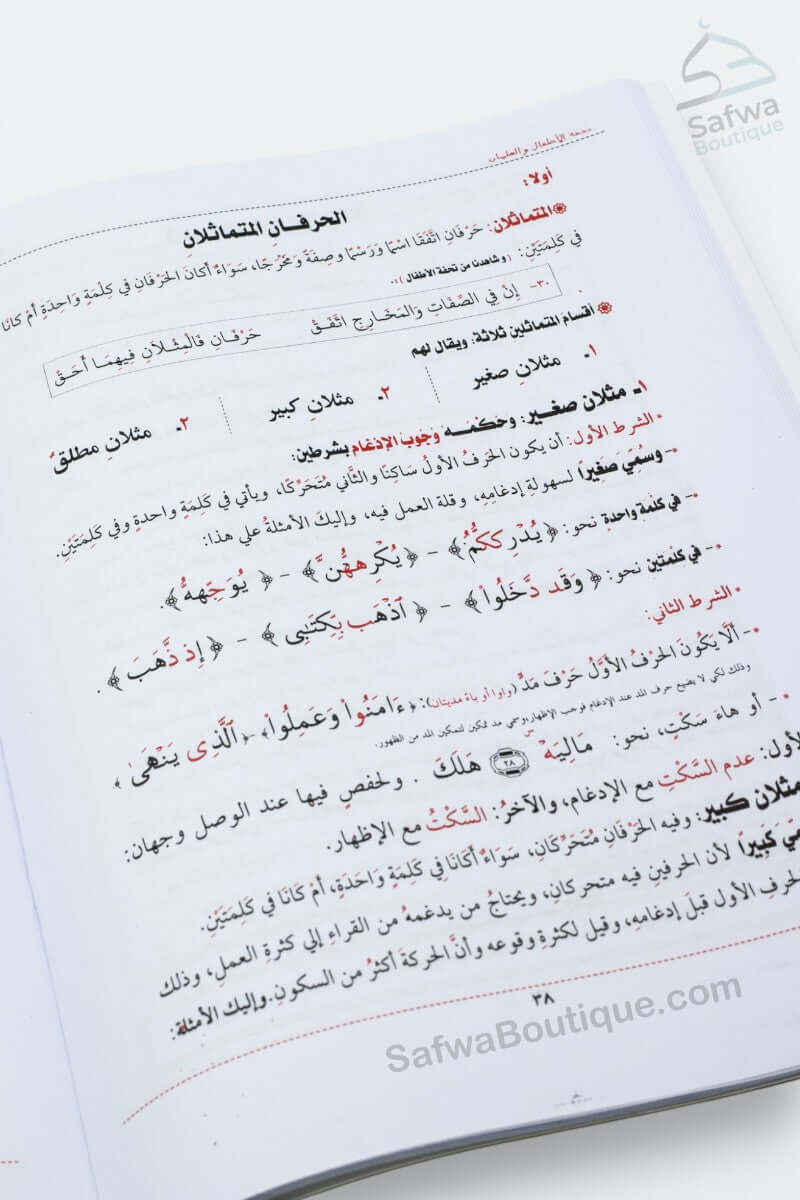 Safwa
Boutique
تحفة الأطفال والغلمان
أولا:
الحرفـانِ المتماثلانِ
المتماثلان: حَرْفَانِ اتَّفَقَا اسْمًا وَرَسْمًا وصِفَةً وَمَخْرَجًا، سَوَاءٌ أَكانَ الحَرْفَانِ في كَلِمَةٍ وَاحِدَةٍ أَمْ كَانَا
في كَلِمَتَيْنِ: (وشاهدنا من تحفة الأطفال):
٣٠- إِنْ فِي الصِّفَاتِ وَالمَخَـارِجِ اتَّفَـقْ حَرْفَـانِ فَالْمِثْـلاَنِ فِيهِمَـا أَحَـقْ
أقسام المتماثلين ثلاثة: ويقال لهم
١ـ مثلان صغير ٢ـ مثلانِ كبير ٣ـ مثلانِ مطلق
١ـ مثلان صغـير: وحُكْمُـه وُجُوبُ الإِدْغَامِ بشرطين:
• الشرط الأول: أن يكون الحَرْفُ الأولُ سَاكِنًا والثَّاني مُتَحَرِّكًا، ويأتي في كَلِمَةٍ واحدةٍ وفي كَلِمَتَيْنِ.
- وسُمِّيَ صَغِيرًا لسهولةِ إدغامِهِ، وقلة العمل فيه، وإليكَ الأمثلةُ علي هذا:
- في كلمة واحدة نحو: ﴿يُدْرِككُّمُ﴾ - ﴿يُكْرِههُّنَّ﴾ - ﴿يُوَجِّههُّ﴾.
- في كلمتين نحو: ﴿وَقَد دَّخَلُواْ﴾ - ﴿ٱذْهَب بِّكِتَٰبِى﴾ - ﴿إِذ ذَّهَبَ﴾.
• الشرط الثاني:
- أَلَّا يَكُونَ الحَرْفُ الأَوَّلُ حَرْفَ مَدٍّ (واوا أو ياءً مديتان): ﴿ءَامَنُواْ وَعَمِلُواْ﴾ - ﴿ٱلَّذِى يَنْهَىٰ﴾
وذلك لكي لا يضيع حرف المد عند الإدغام فوجب الإظهار، وسمي مد تمكين لتمكين المد من الظهور.
- أو هاءَ سَكْتٍ، نحو: مَالِيَهْ ۜ ٢٨ هَلَكَ . ولحفصٍ فيها عند الوصل وجهان:
الأول: عدم السَّكْتِ مع الإدغام، والآخرُ: السَّكْتُ مع الإظهار.
مثلان كبير: وفيه الحَرْفَانِ مُتَحَرِّكَانِ، سَوَاءٌ أَكَانَا فِي كَلِمَةٍ وَاحِدَةٍ، أَمْ كَانَا فِي كَلِمَتَيْنِ.
سُمِّيَ كَبِيرًا لأن الحرفينِ فيه متحركانِ، ويحتاجُ من يدغمهُ من القراءِ إلي كثرةِ العملِ، وذلك
الحرفِ الأول قبلَ إدغامهِ، وقيل لكثرةِ وقوعه وأنَّ الحركةَ أكثرُ من السكونِ. وإليك الأمثلة:
٣٨
SafwaBoutique.com